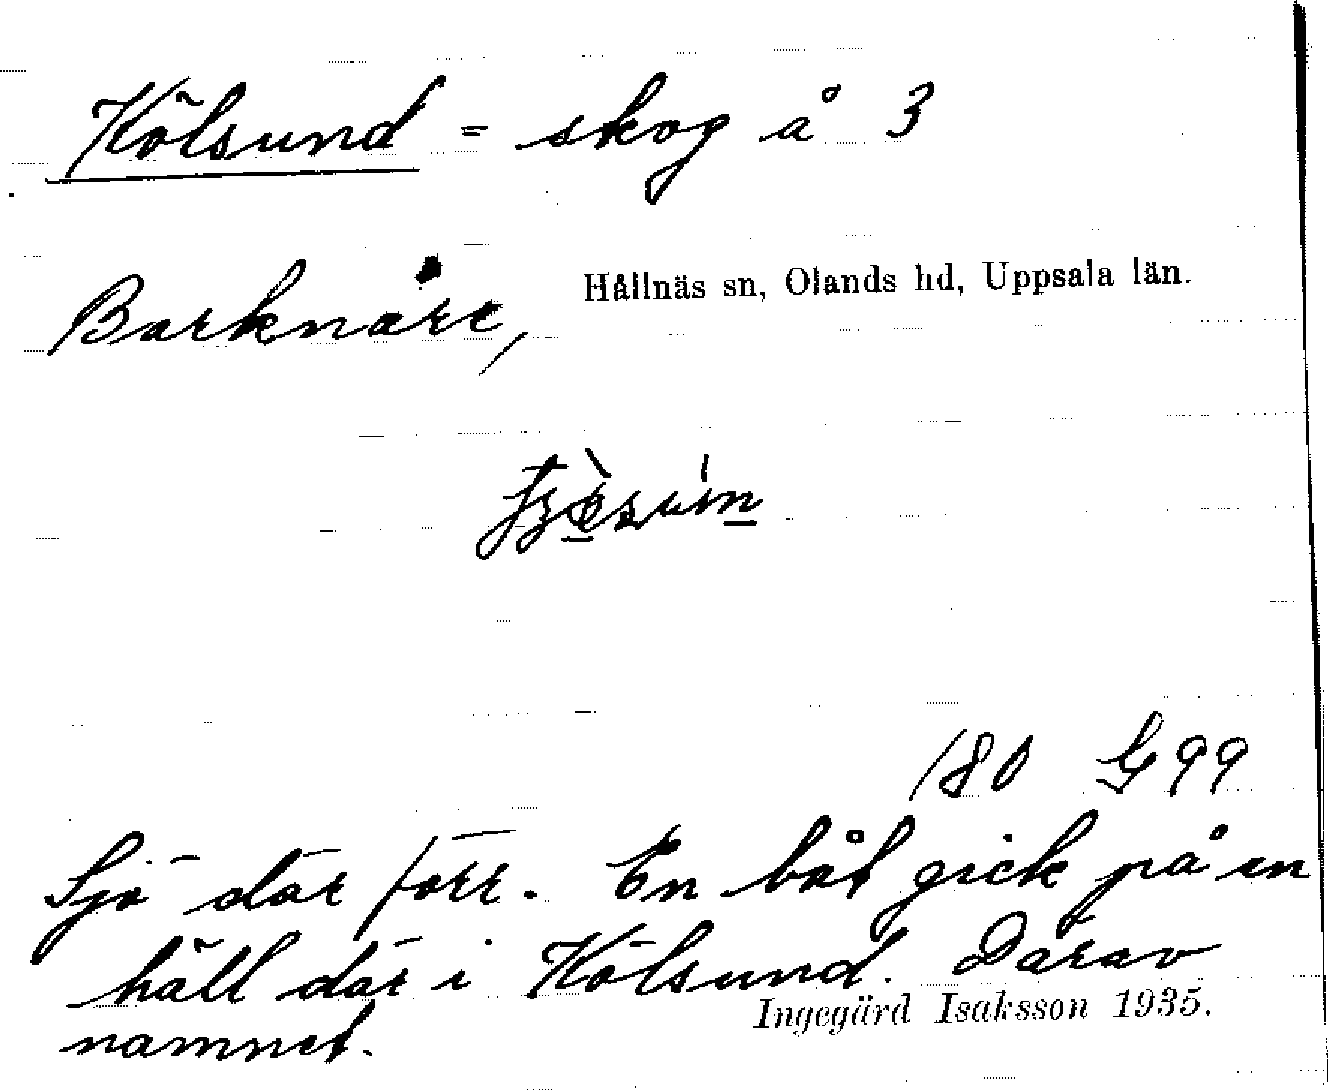 Kölsund = skog å 3
Barknåre, Hållnäs sn, Olands hd, Uppsala län.
180 G 99
Sjö där förr. En båt gick på en
häll där i Kölsund. Därav
namnet.
Ingegärd Isaksson 1935.